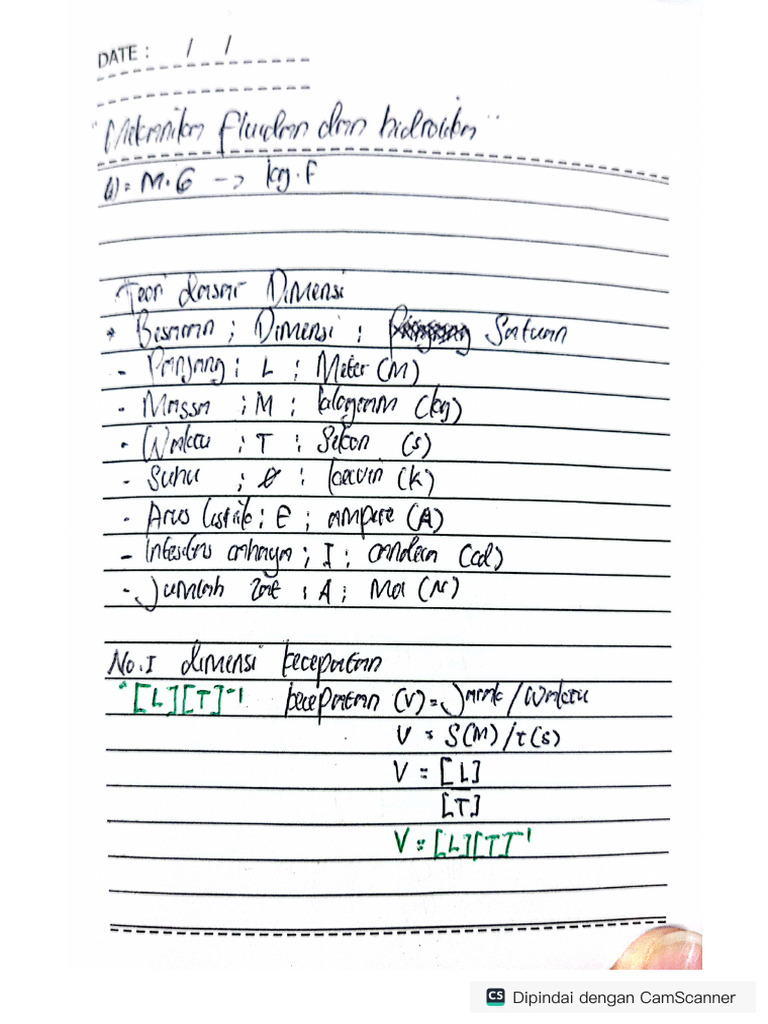 DATE : / /
"Mekanika fluidan dan hidrolika"
W = M.G -> kg.F
Teori dasar Dimensi
* Besaran ; Dimensi ; Satuan
- Panjang ; L ; Meter (M)
- Massa ; M ; kilogram (kg)
- Waktu ; T ; Sekon (s)
- Suhu ; θ ; kelvin (K)
- Arus listrik ; E ; ampere (A)
- Intesitas cahaya ; I ; candela (cd)
- Jumlah Zat ; A ; Mol (N)
No.I dimensi kecepatan
"[L][T]⁻¹ kecepatan (V) = Jarak / Waktu
V = S(M)/t(s)
V = [L]
[T]
V = [L][T]⁻¹
CS Dipindai dengan CamScanner